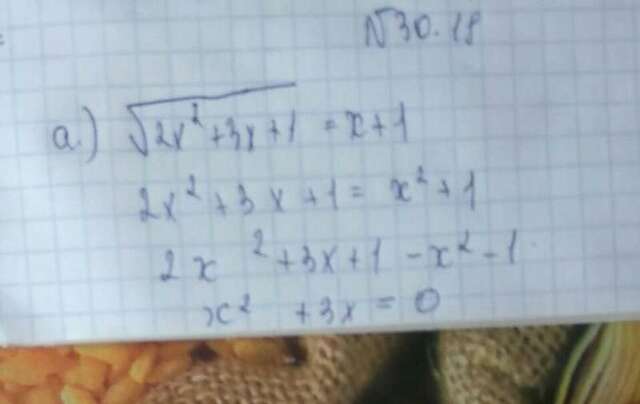 №30.18
а.) √2x²+3x+1 = x+1
2x²+3x+1= x²+1
2x²+3x+1-x²-1
x²+3x=0